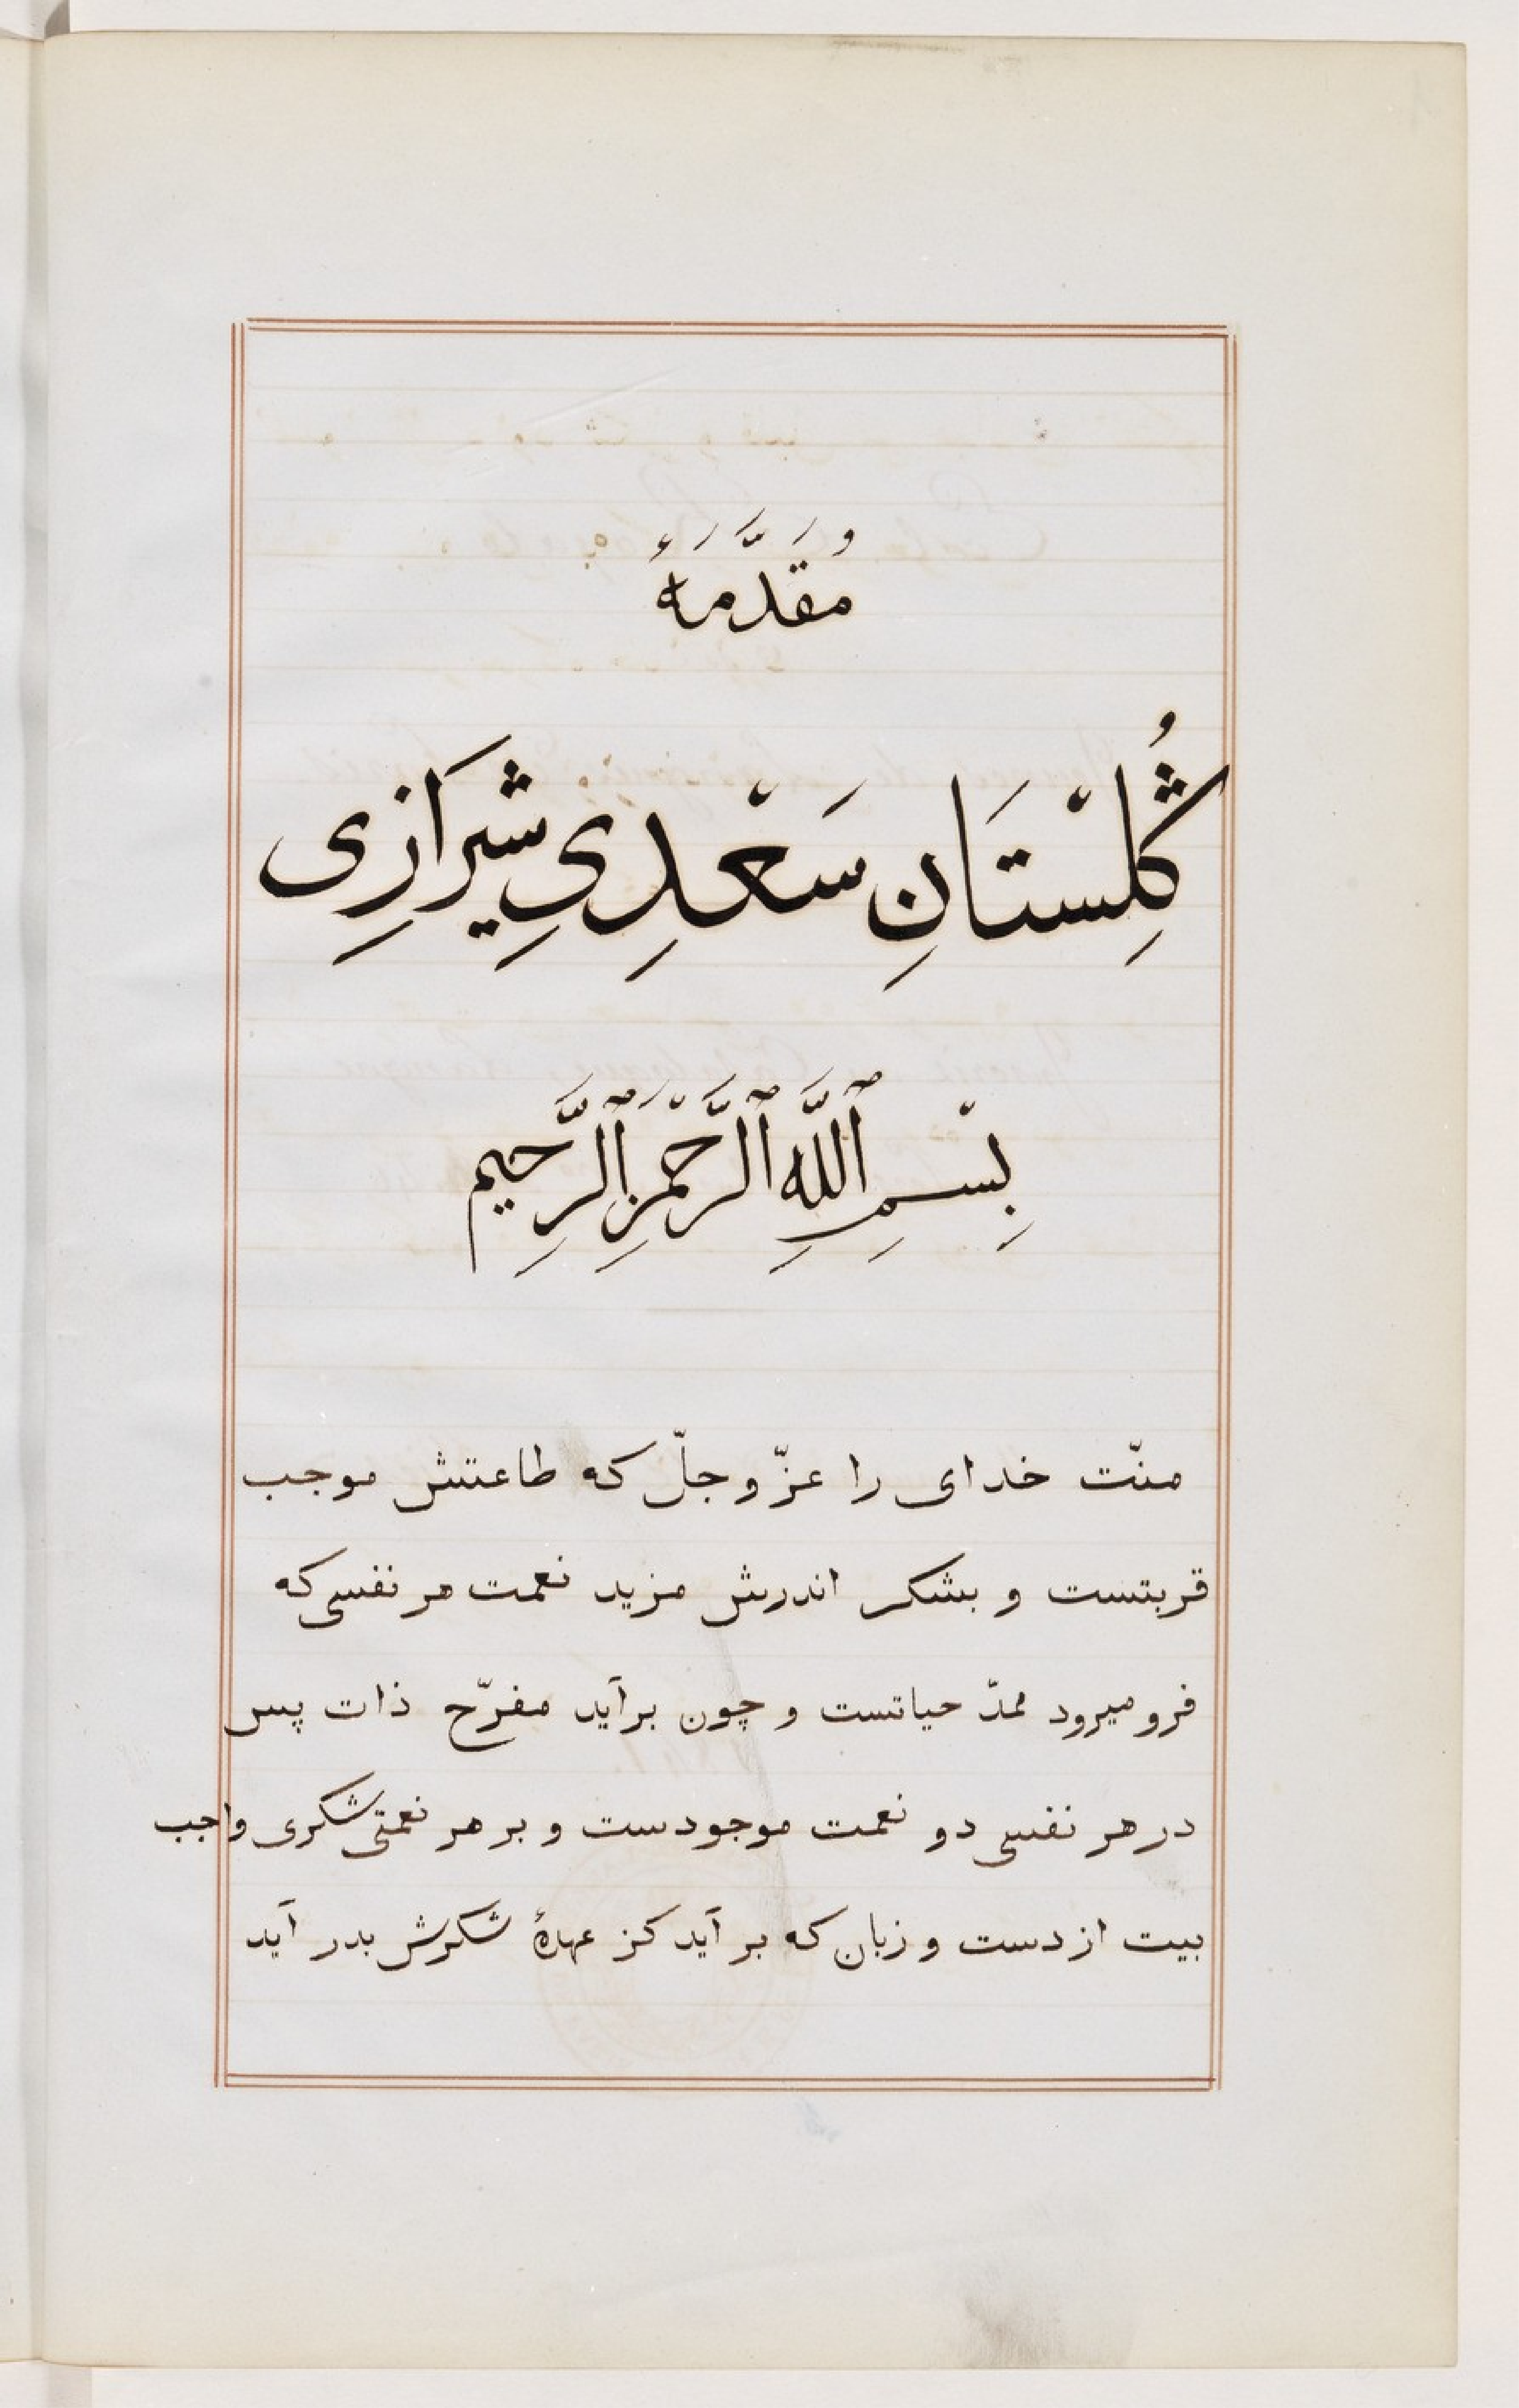 مُقَدَّمَهٔ
گُلِسْتَانِ سَعْدِیِ شِیرَازِی
بِسْمِ ٱللَّهِ ٱلرَّحْمَنِ ٱلرَّحِیم
منّت خدای را عزّ و جلّ که طاعتش موجب
قربتست و بشکر اندرش مزید نعمت هر نفسی که
فرو میرود ممدّ حیاتست و چون برآید مفرّح ذات پس
در هر نفسی دو نعمت موجودست و بر هر نعمتی شکری واجب
بیت از دست و زبان که بر آید کز عهدهٔ شکرش بدر آید